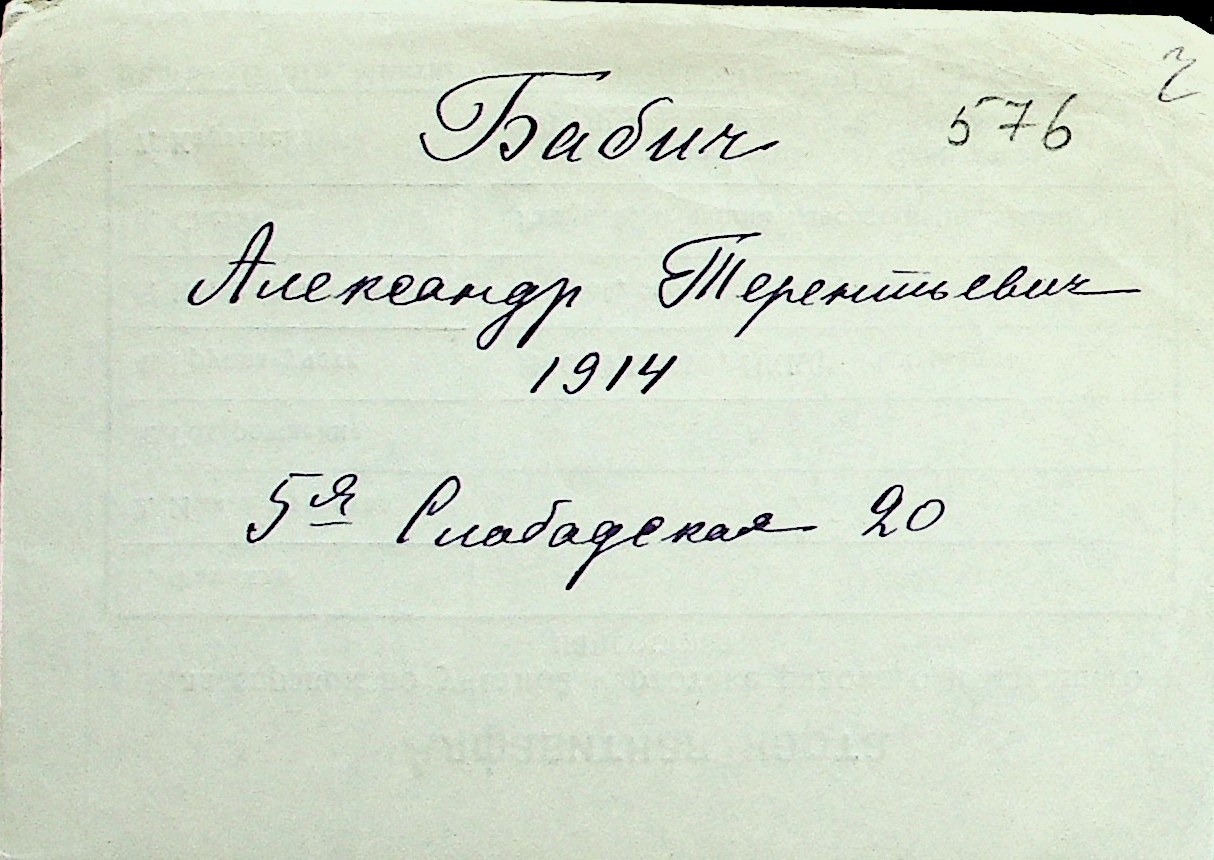 Бабич 576
Александр Терентьевич
1914
5я Слабадская 20